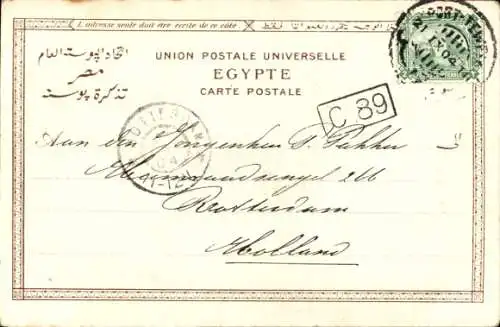 L'adresse seule doit être écrite de ce côté
اتحاد البوستة العام
مصر
تذكرة بوستة
UNION POSTALE UNIVERSELLE
EGYPTE
CARTE POSTALE
PORT-TEWFIK
C 89
ROTTERDAM
Aan den Jongenheer S. Pakker
266
Rotterdam
Holland